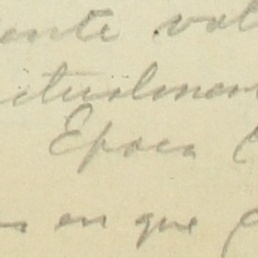 ente vol
ctualmen
Epoca
s en que